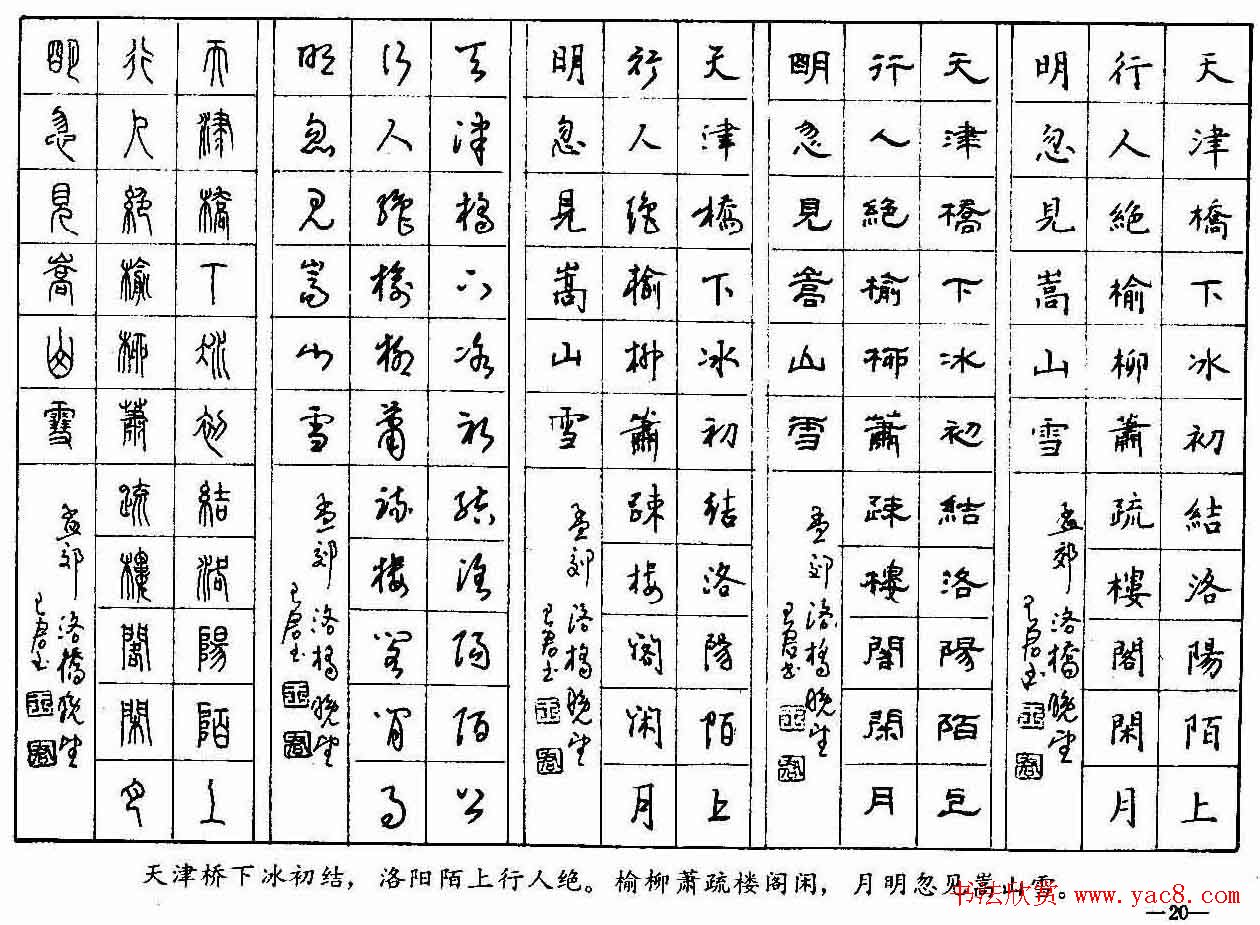 天津橋下冰初結洛陽陌上
行人絶榆柳蕭疏樓閣閑月
明忽見嵩山雪
孟郊
洛橋晚望
天津橋下冰初結洛陽陌上
行人絶榆柳蕭疎樓閣閑月
明忽見嵩山雪
孟郊
洛橋晚望
天津橋下冰初結洛陽陌上
行人絶榆柳蕭疎樓閣閑月
明忽見嵩山雪
孟郊
洛橋晚望
天津橋下冰初結洛陽陌上
行人絶榆柳蕭疏樓閣閑月
明忽見嵩山雪
孟郊
洛橋晚望
天津橋下冰初結洛陽陌上
行人絶榆柳蕭疏樓閣閑月
明忽見嵩山雪
孟郊
洛橋晚望
天津桥下冰初结，洛阳陌上行人绝。榆柳萧疏楼阁闲，月明忽见嵩山雪。
书法欣赏 www.yac8.com
—20—